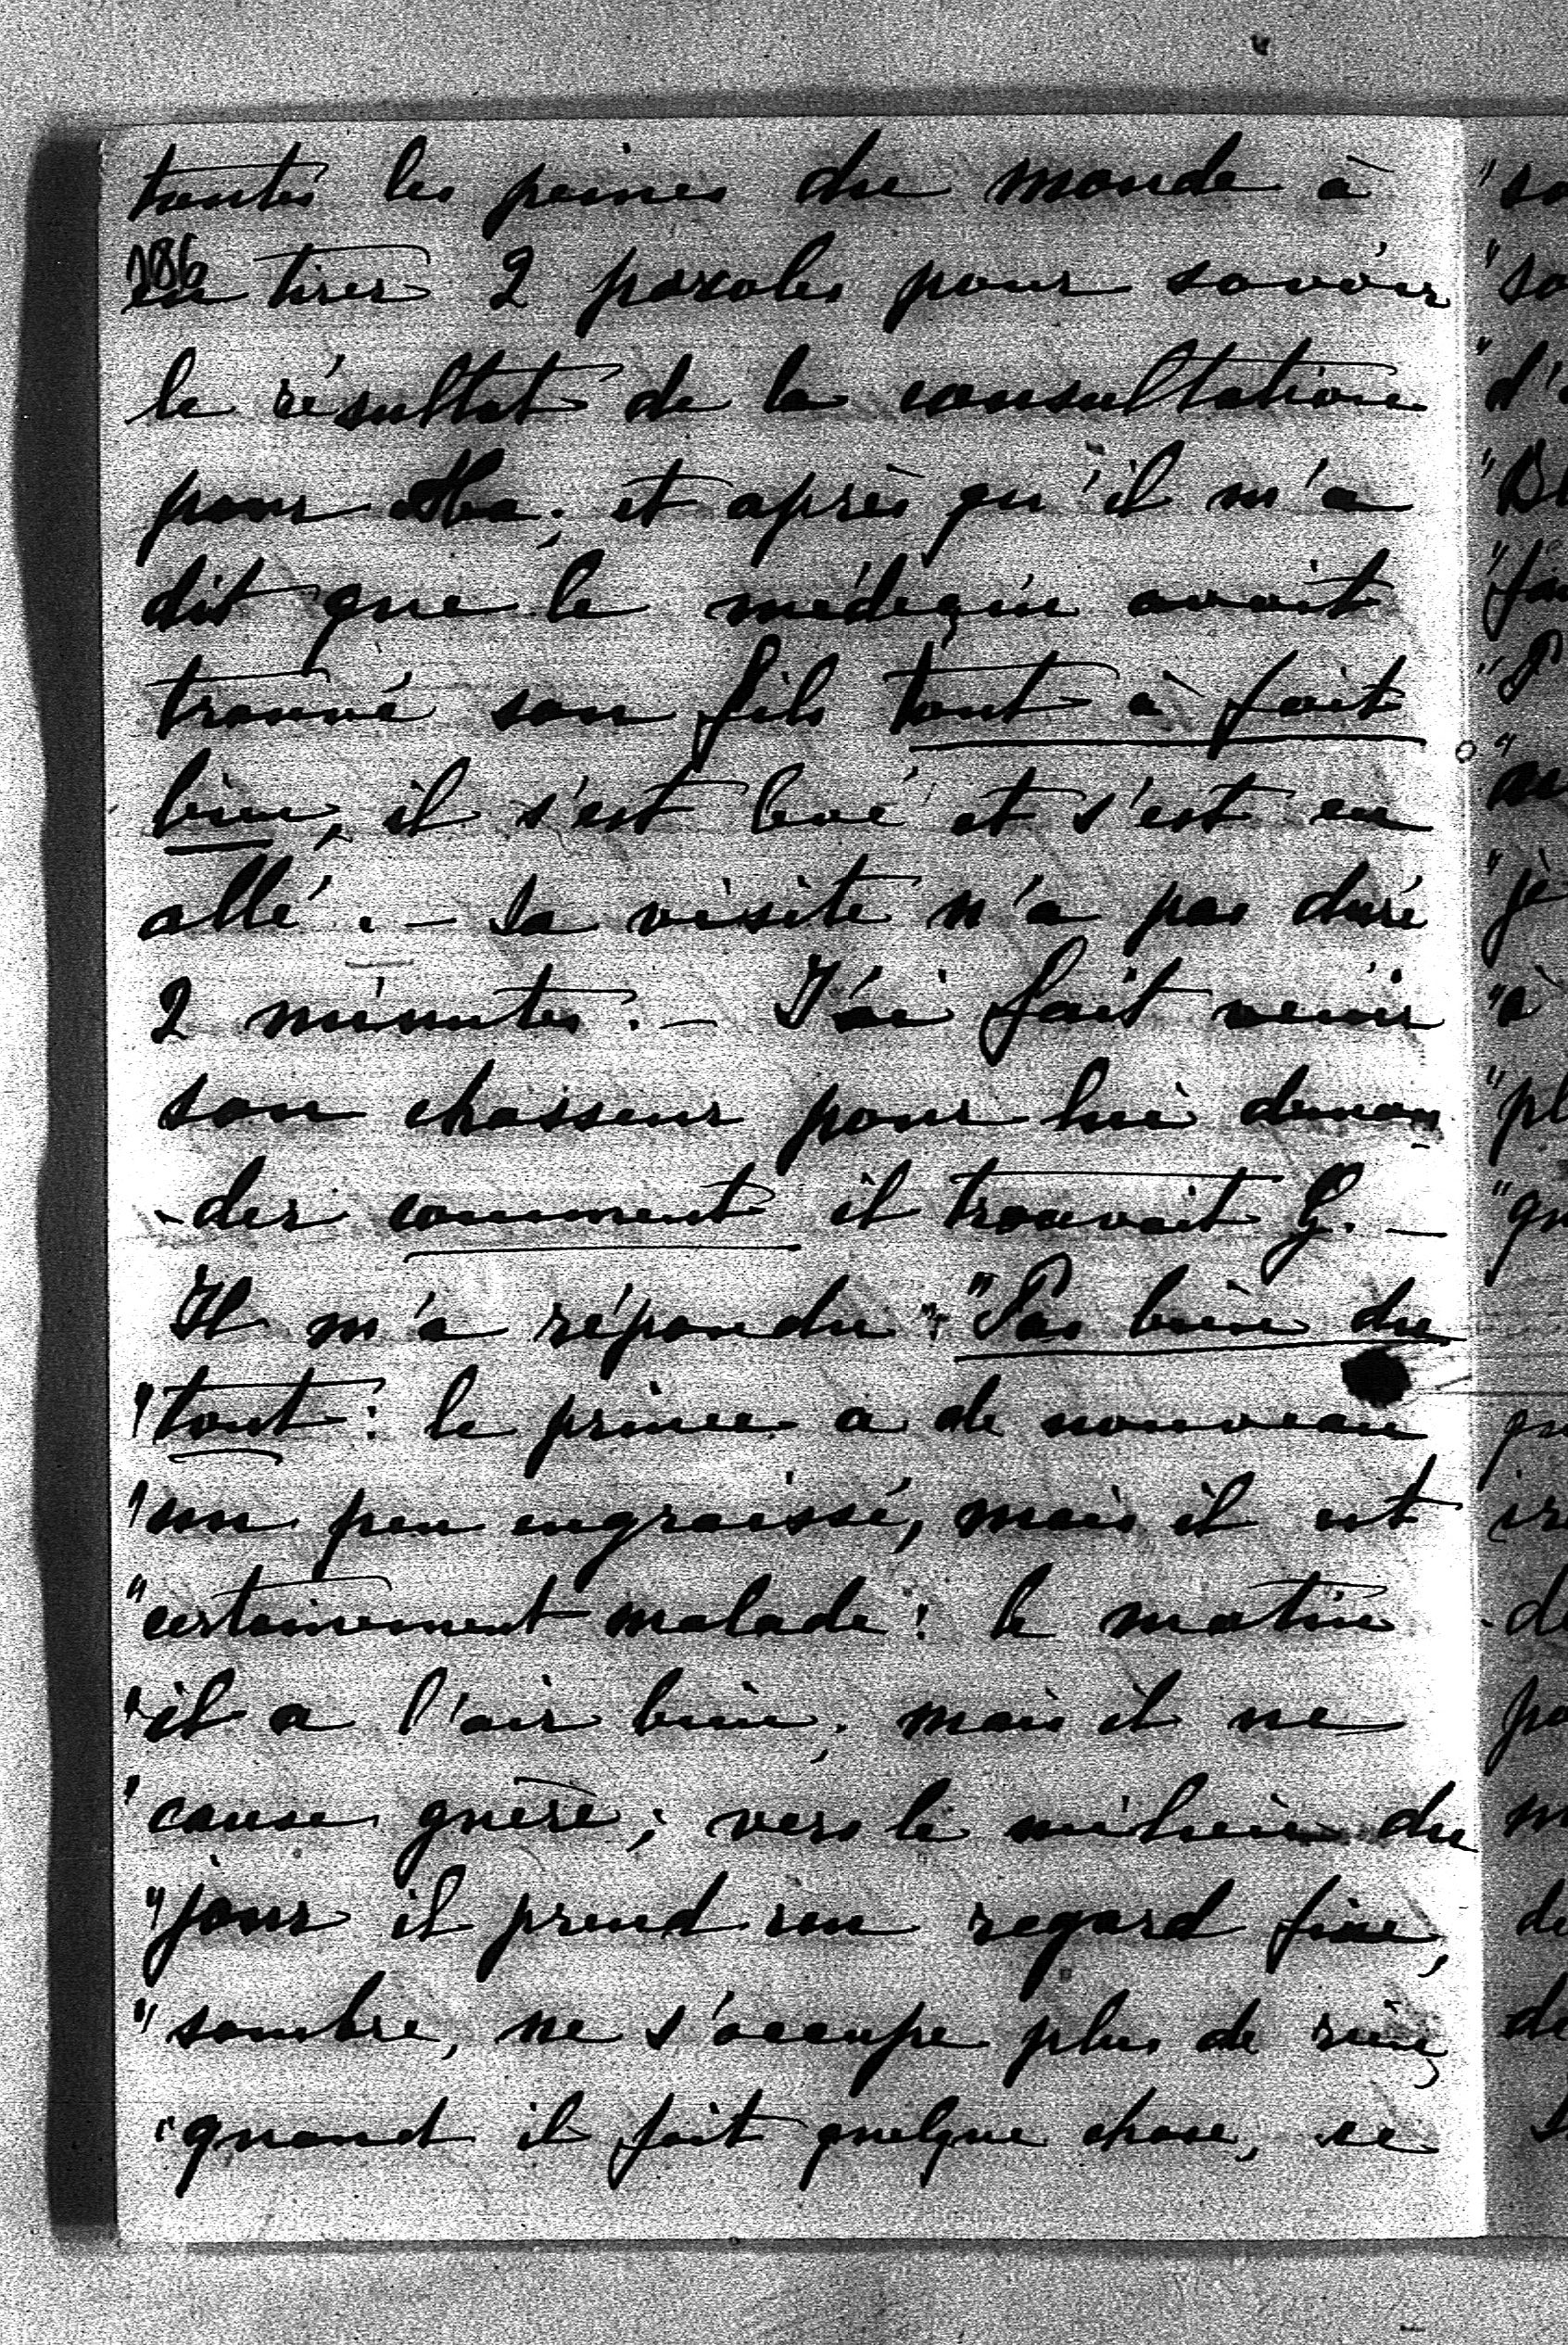 toutes les peines du monde à
186
en tirer 2 paroles pour savoir
le résultat de la consultation
pour et après qu'il m'a
dit que le médeçin avait
trouvé son fils tout à fait
bien, il s'est levé et s'est en
allé. – Sa visite n'a pas duré
2 minutes. – J'ai fait venir
son chasseur pour lui deman-
-der comment il trouvait G. –
Il m'a répondu : "Pas bien du
"tout : le prince a de nouveau
"un peu engraissé, mais il est
"certainement malade : le matin
"il a l'air bien, mais il ne
"cause guère; vers le milieu du
"jour il prend un regard fixe,
"sombre, ne s'occupe plus de rien;
"quand il fait quelque chose, se